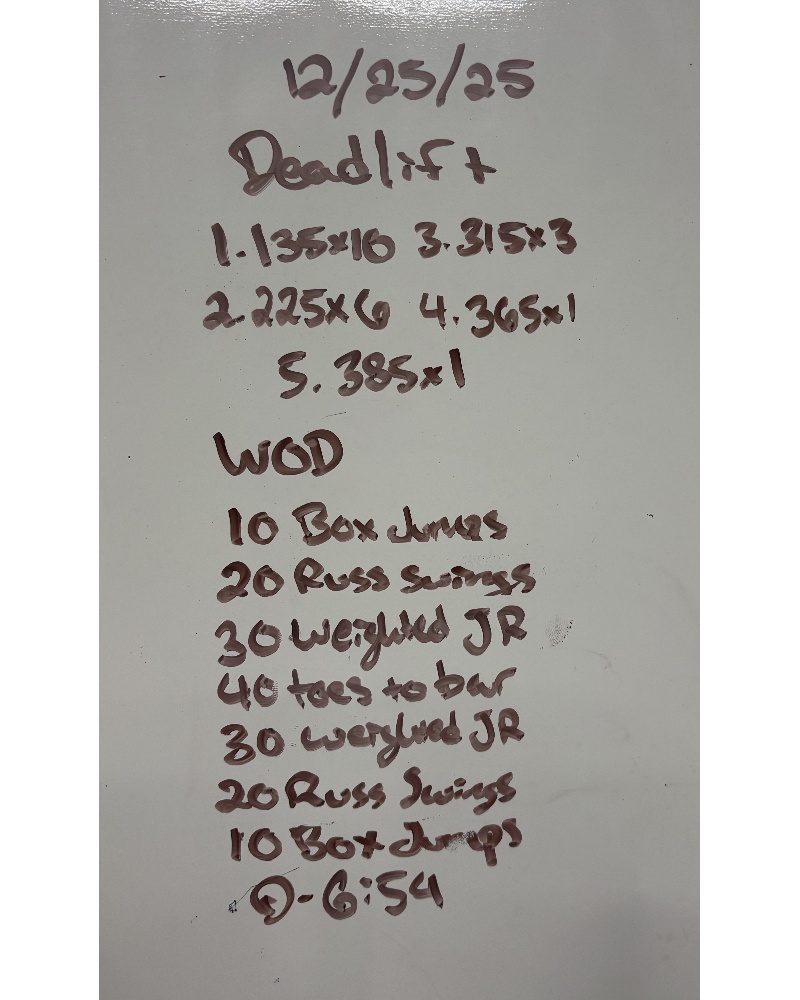 12/25/25
Deadlift
1. 135x10 3. 315x3
2. 225x6 4. 365x1
5. 385x1
WOD
10 Box Jumps
20 Russ Swings
30 weighted JR
40 toes to bar
30 weighted JR
20 Russ Swings
10 Box Jumps
D-6:54